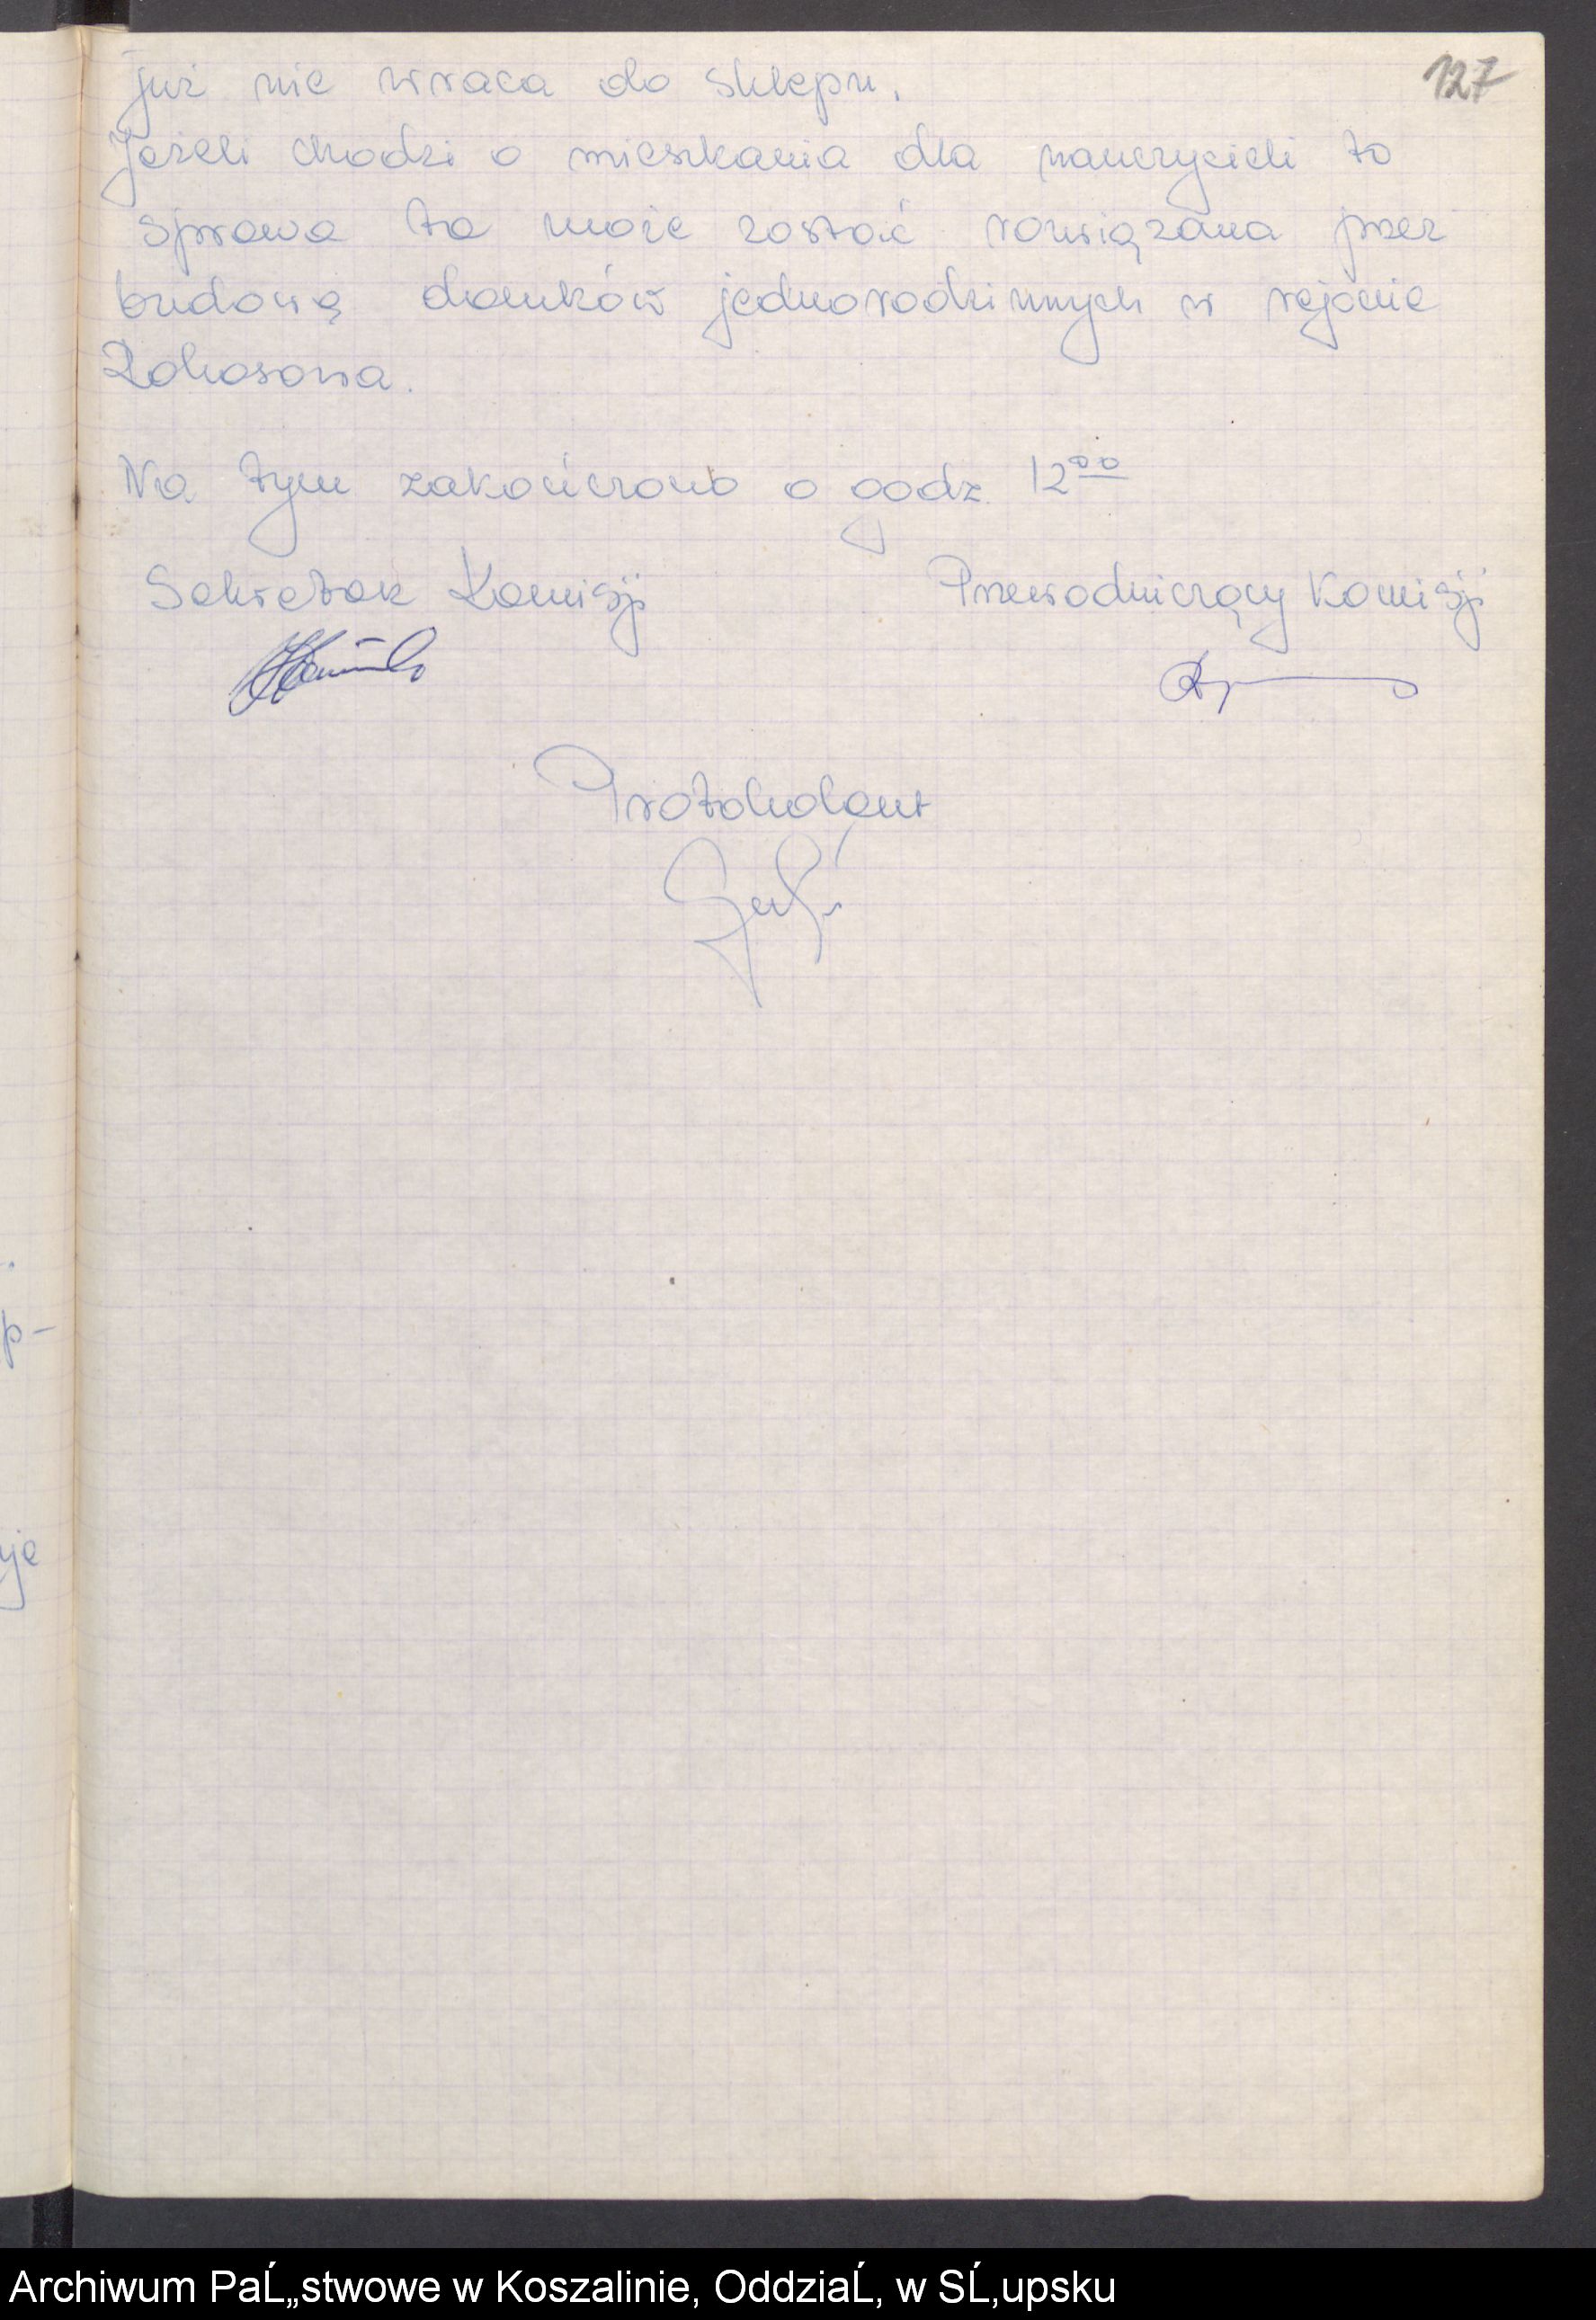 127
już nie wraca do sklepu.
Jeżeli chodzi o mieszkania dla nauczycieli to
sprawa ta może zostać rozwiązana przez
budowę domków jednorodzinnych w rejonie
Na tym zakończono o godz. 12⁰⁰
Sekretarz Komisji Przewodniczący Komisji
Protokolant
p-
uje
Archiwum PaĹ„stwowe w Koszalinie, OddziaĹ‚ w SĹ‚upsku